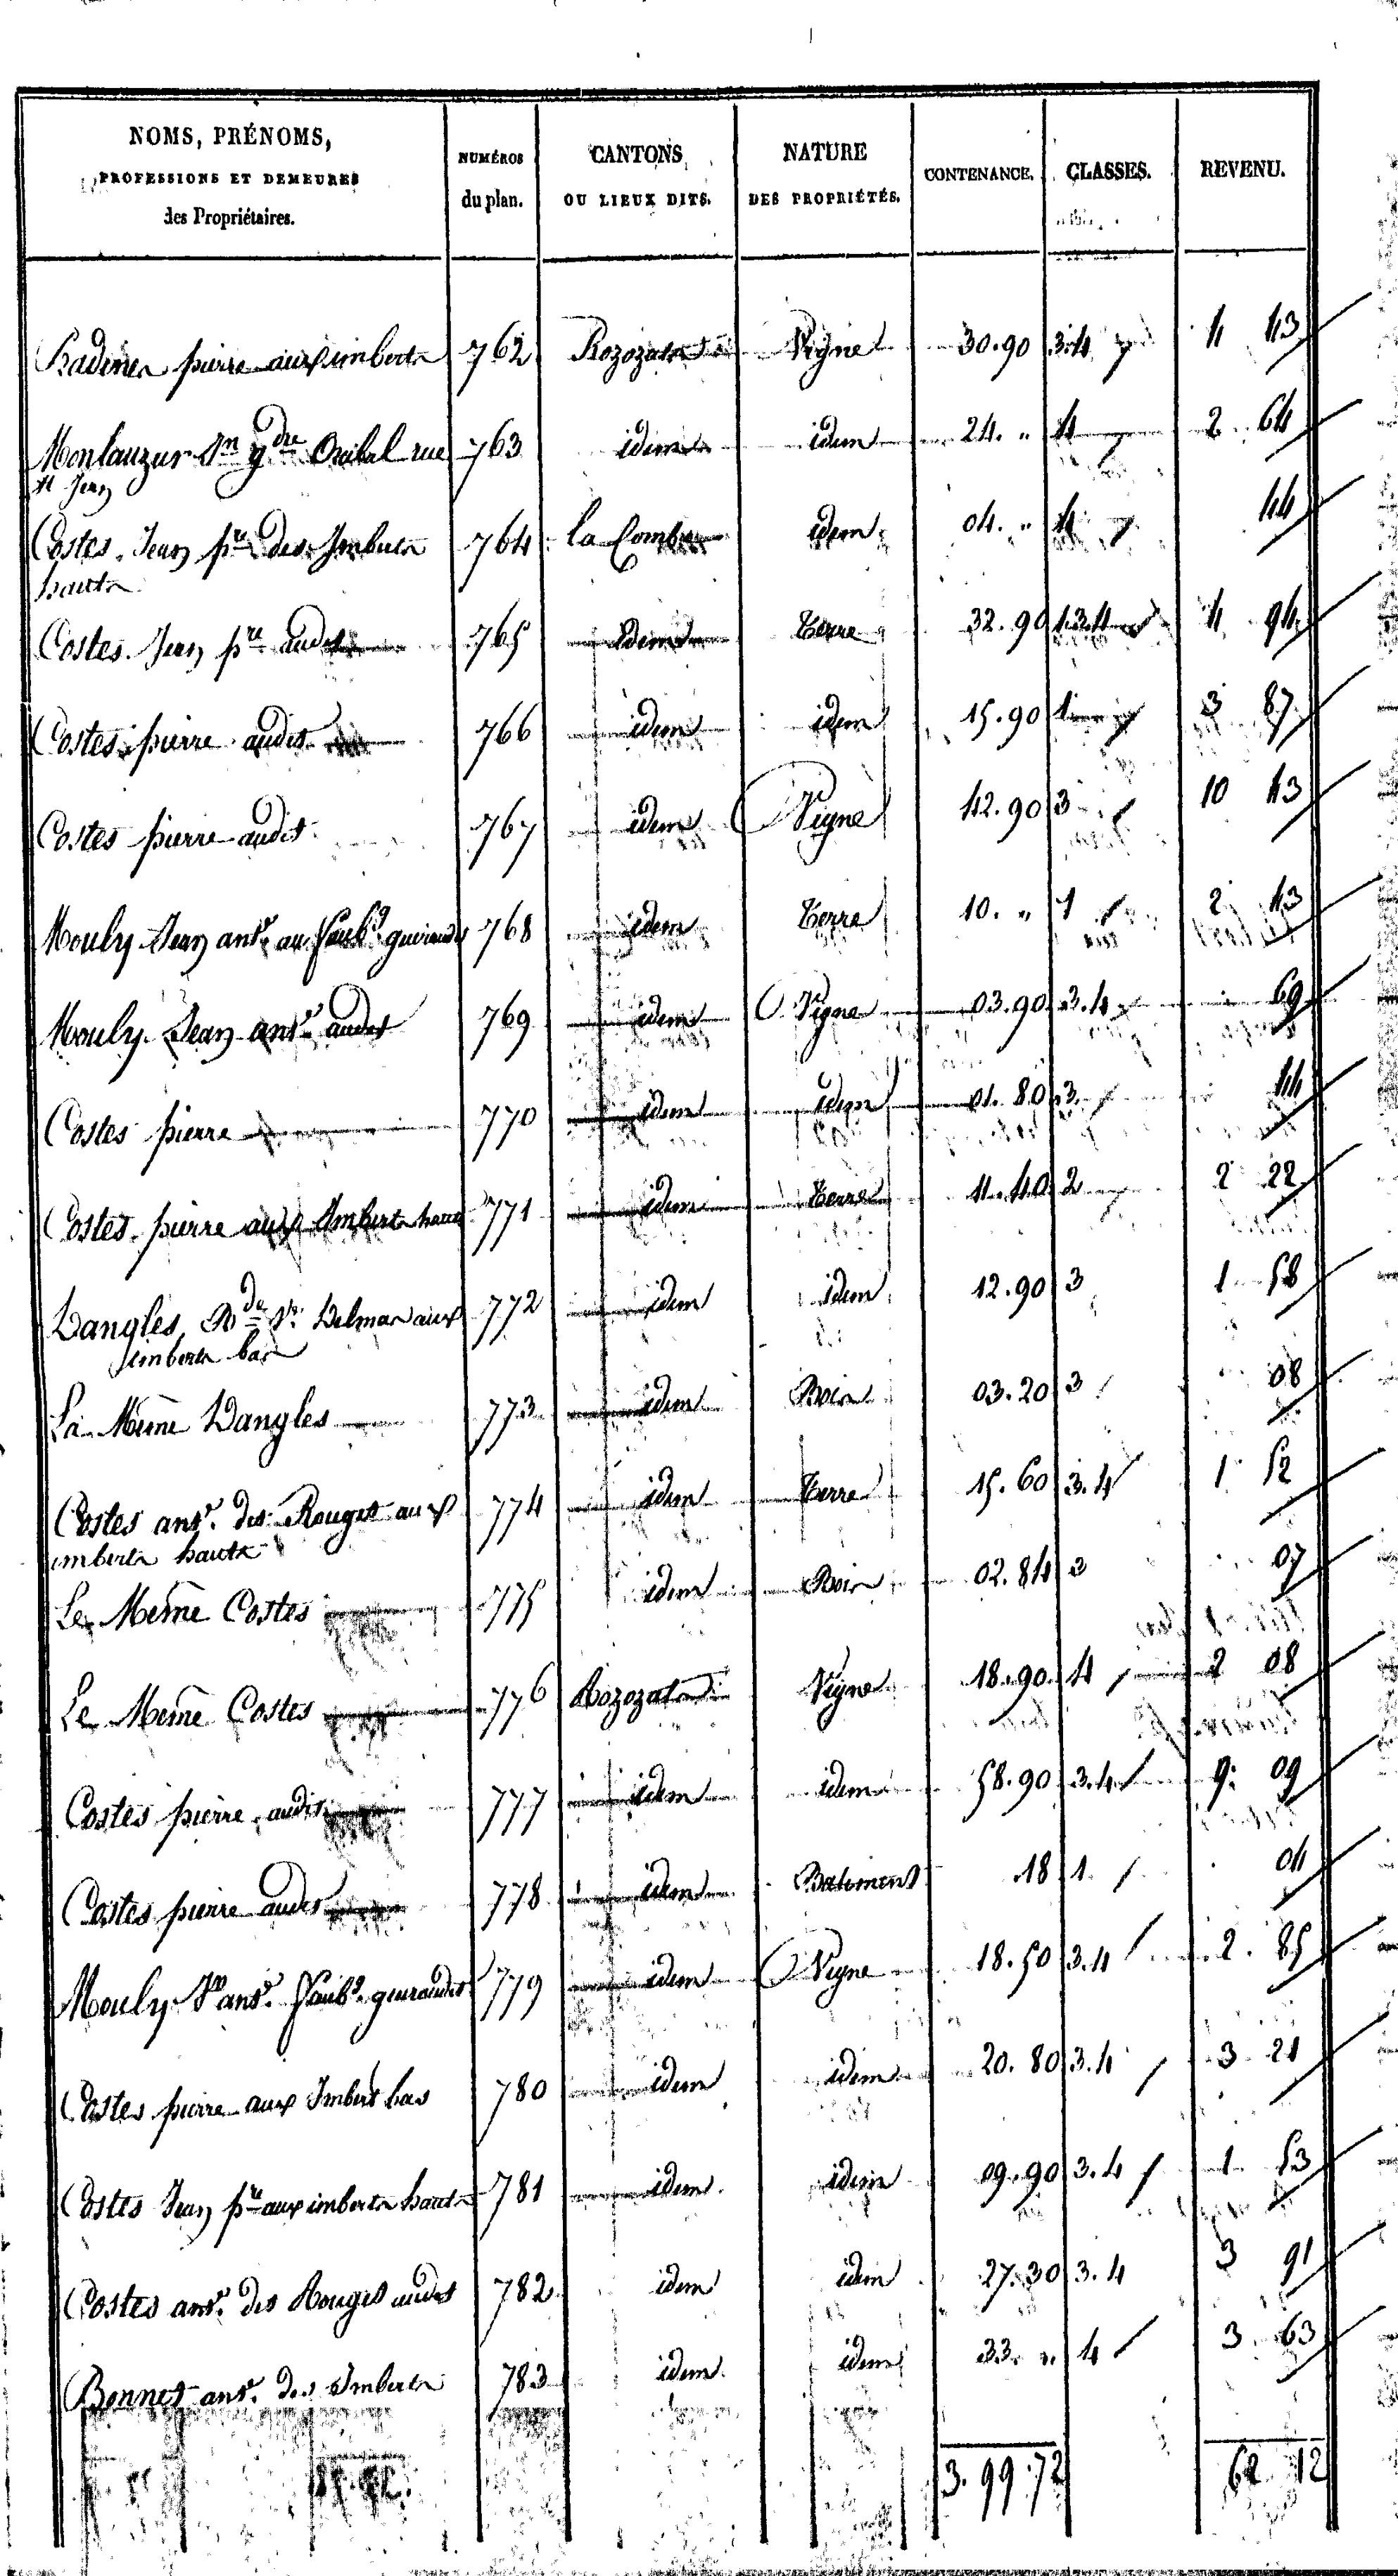 NOMS, PRÉNOMS, PROFESSIONS ET DEMEURES des Propriétaires. NUMÉROS du plan. CANTONS OU LIEUX DITS. NATURE DES PROPRIÉTÉS. CONTENANCE. CLASSES. REVENU.
pierre aux imberts 762 Rozozats Vigne 30.90 3.4 4 43
Monlauzur rue 763 idem idem 24. " 4 2 64
St Jean
Costes Jean pre des Imberts 764 la Combe idem 04. " 4 44
hauts
Costes Jean pre audit 765 idem Terre 32.90 4 94
Costes pierre audit 766 idem idem 15.90 1 3 87
Costes pierre audit 767 idem Vigne 42.90 3 10 43
Mouly Jean ant. au faubg guiraudet 768 idem Terre 10. " 1 2 43
Mouly Jean ant. audit 769 idem Vigne 03.90 3.4 69
Costes pierre 770 idem idem 01.80 3 44
Costes pierre aux Imberts hauts 771 idem Terre 11.40 2 2 22
Dangles Delmas aux 772 idem idem 12.90 3 1 58
Imberts bas
La Même Dangles 773 idem Bois 03.20 3 08
Costes ant. des Rouget aux 774 idem Terre 15.60 3.4 1 52
imberts hauts
Le Même Costes 775 idem Bois 02.84 3 07
Le Même Costes 776 Rozozats Vigne 18.90 4 2 08
Costes pierre audit 777 idem idem 58.90 3.4 9 09
Costes pierre audit 778 idem Batiment 18 1 04
Mouly Jn ant. faubg guiraudet 779 idem Vigne 18.50 3.4 2 85
Costes pierre aux Imbert bas 780 idem idem 20.80 3.4 3 21
Costes Jean pre aux imberts hauts 781 idem idem 09.90 3.4 1 53
Costes ant. des Rouget audit 782 idem idem 27.30 3.4 3 91
Bonnet ant. des Imberts 783 idem idem 33. " 4 3 63
3.99.72 62 12